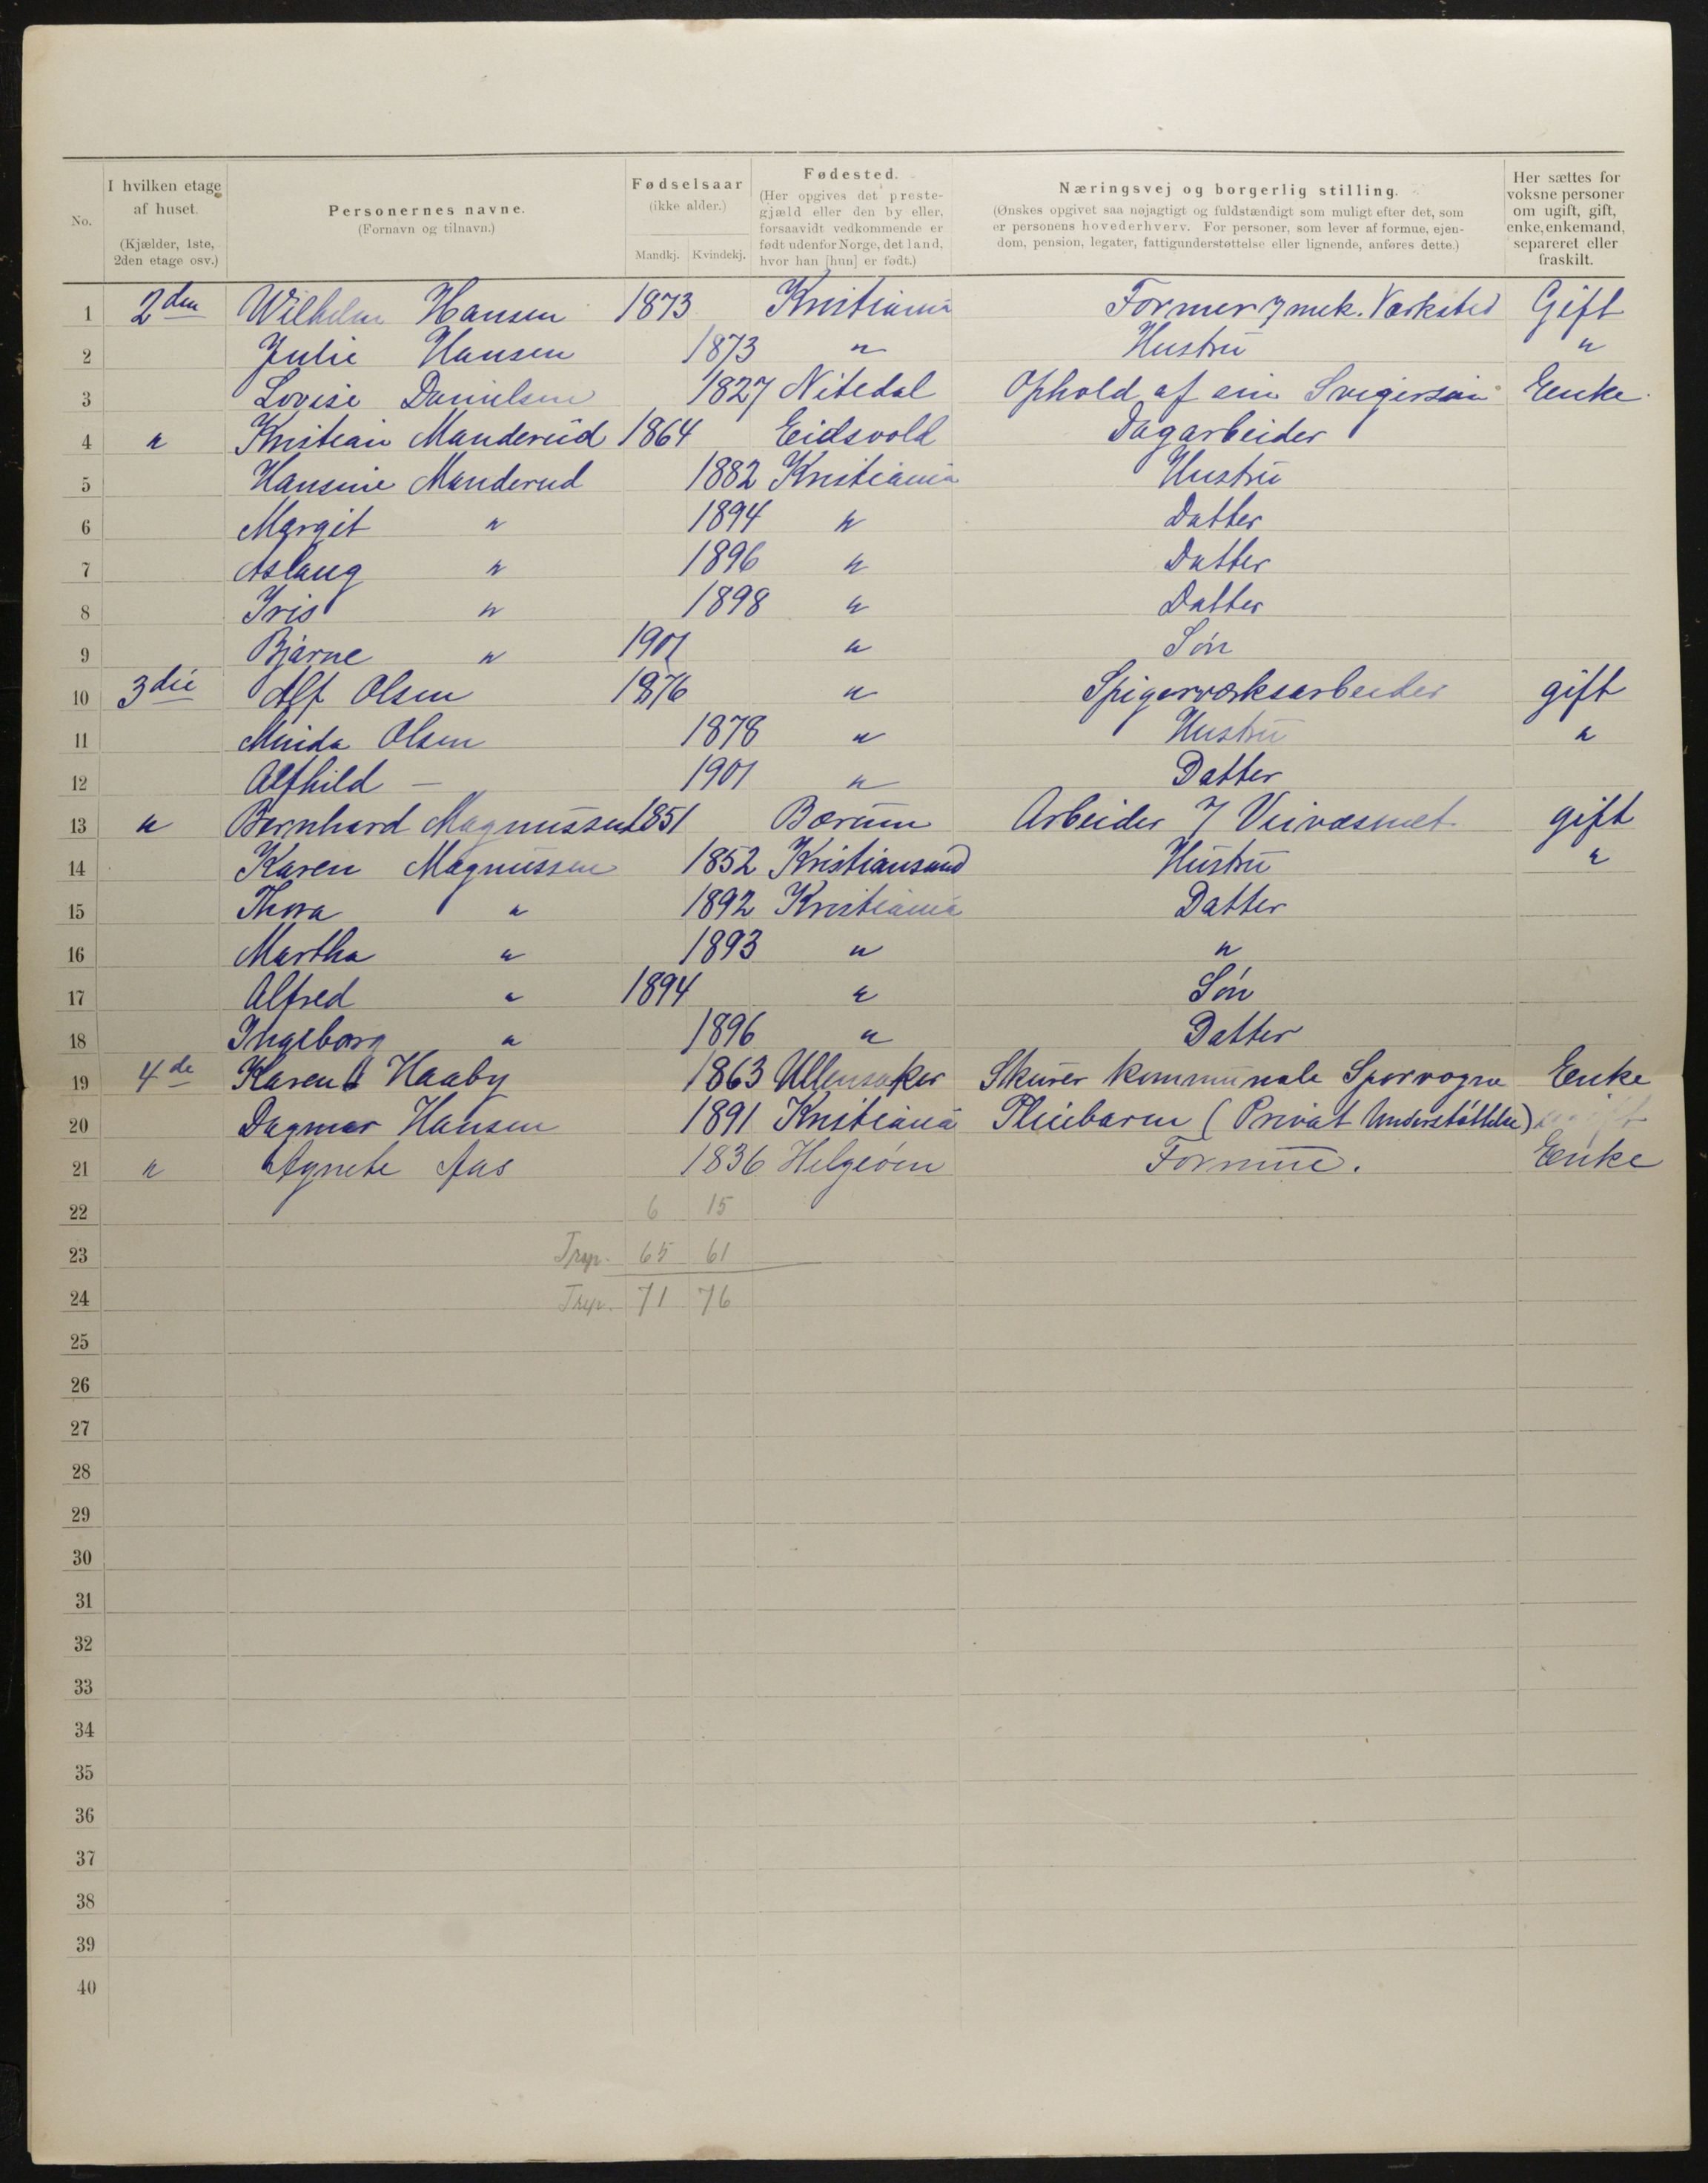 No.
I hvilken etage af huset. (Kjælder, 1ste, 2den etage osv.)
Personernes navne. (Fornavn og tilnavn.)
Fødselsaar (ikke alder.) Mandkj. Kvindekj.
Fødested. (Her opgives det prestegjæld eller den by eller, forsaavidt vedkommende er født udenfor Norge, det land, hvor han [hun] er født.)
Næringsvej og borgerlig stilling. (Ønskes opgivet saa nøjagtigt og fuldstændigt som muligt efter det, som er personens hovederhverv. For personer, som lever af formue, ejendom, pension, legater, fattigunderstøttelse eller lignende, anføres dette.)
Her sættes for voksne personer om ugift, gift, enke, enkemand, separeret eller fraskilt.
1 2den Wilhelm Hansen 1873 Kristiania Former / mek. Værksted Gift
2 Julie Hansen 1873 " Hustru "
3 Lovise Danielsen 1827 Nitedal Ophold af sin Svigersøn Enke
4 " Kristian Manderud 1864 Eidsvold Dagarbeider
5 Hansine Manderud 1882 Kristiania Hustru
6 Margit " 1894 " Datter
7 Aslaug " 1896 " Datter
8 Iris " 1898 " Datter
9 Bjarne " 1901 " Søn
10 3die Alf Olsen 1876 " Spigerværksarbeider gift
11 Minda Olsen 1878 " Hustru "
12 Alfhild — 1901 " Datter
13 " Bernhard Magnussen 1851 Bærum Arbeider / Veivæsnet gift
14 Karen Magnussen 1852 Kristiansund Hustru "
15 Thora " 1892 Kristiania Datter
16 Martha " 1893 " "
17 Alfred " 1894 " Søn
18 Ingeborg " 1896 " Datter
19 4de Karen Haaby 1863 Ullensaker Skurer kommunale Sporvogne Enke
20 Dagmar Hansen 1891 Kristiania Pleiebarn (Privat Understøttelse)
21 " Agnete Aas 1836 Helgeøen Formue. Enke
22 6 15
23 Trsp. 65 61
24 Trsp. 71 76
25
26
27
28
29
30
31
32
33
34
35
36
37
38
39
40